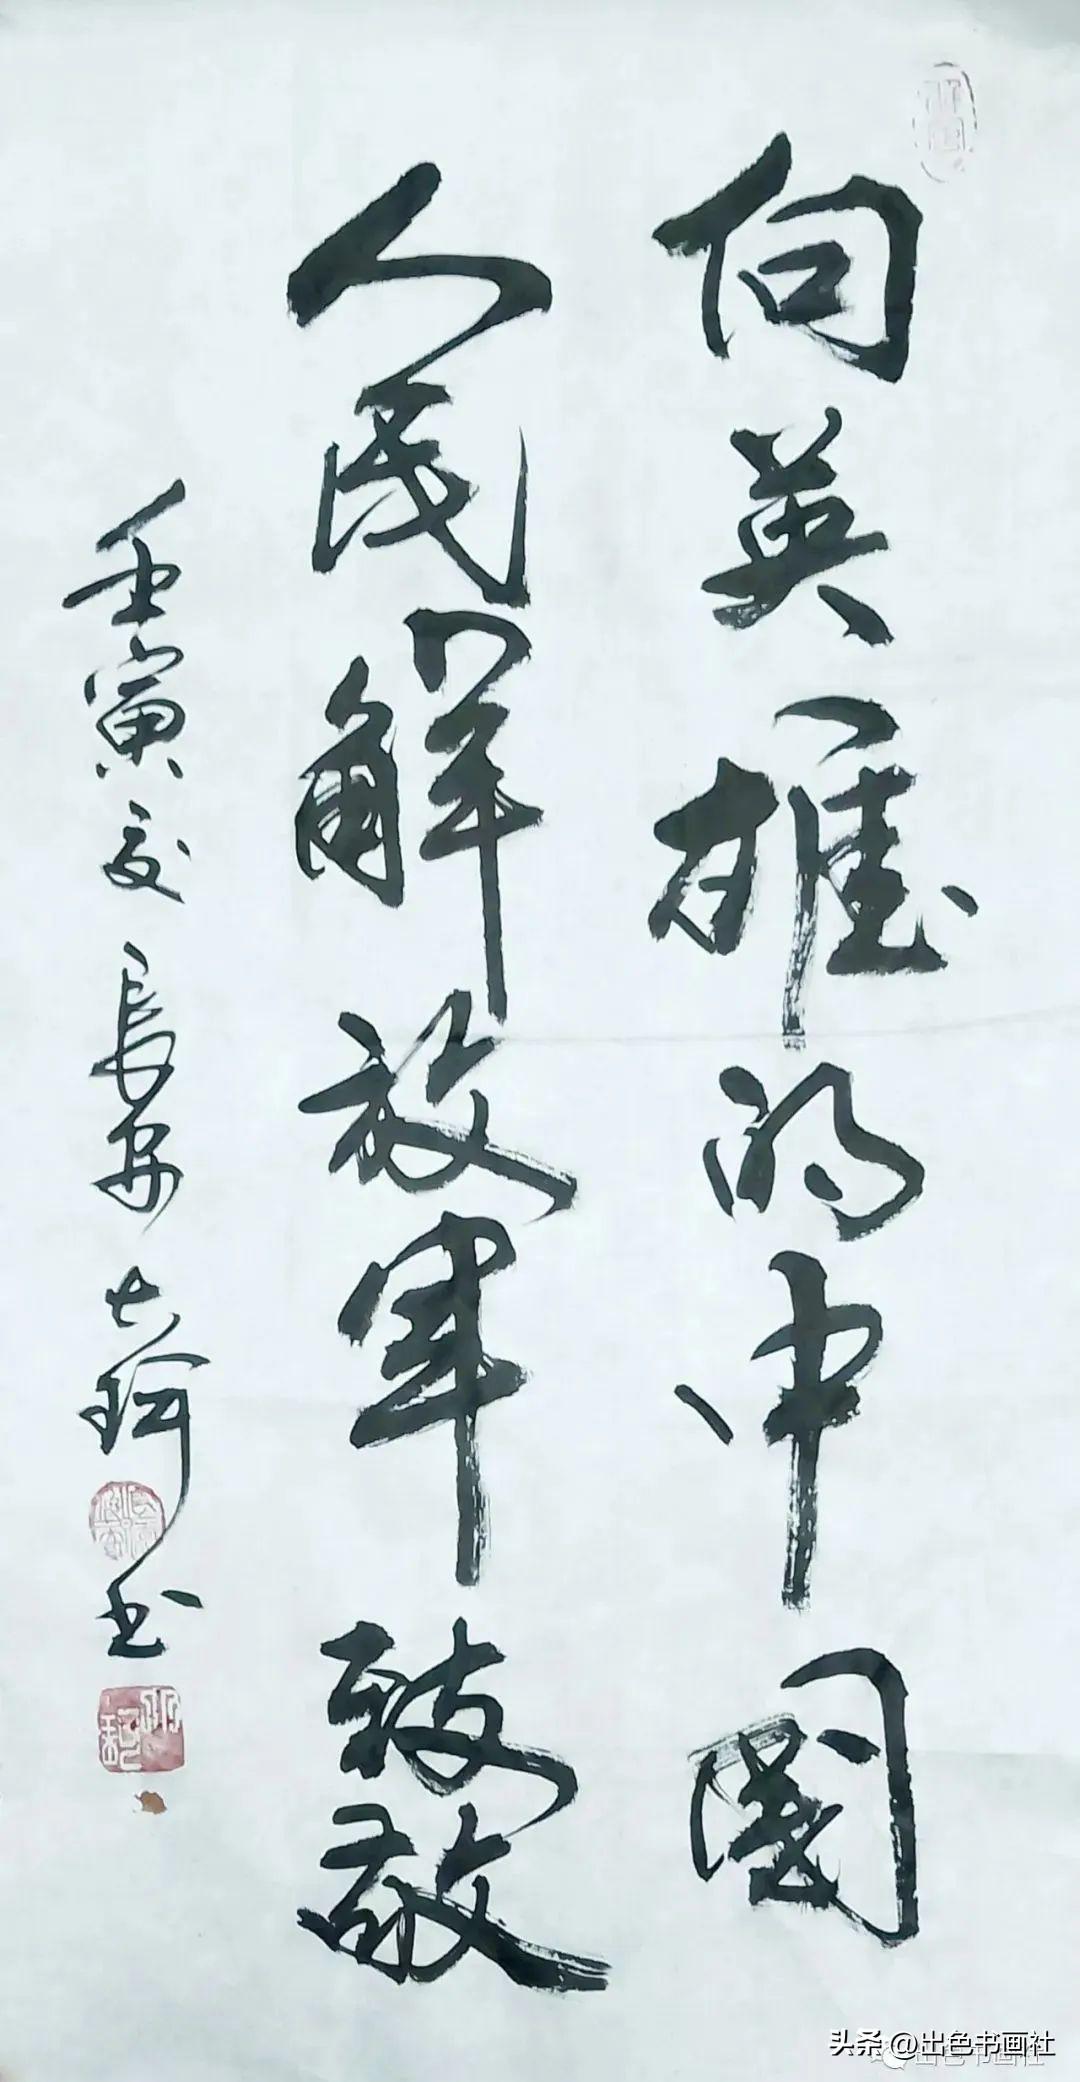 向英雄的中国
人民解放军致敬
壬寅夏长安大珂书
头条 @出色书画社
出色书画社